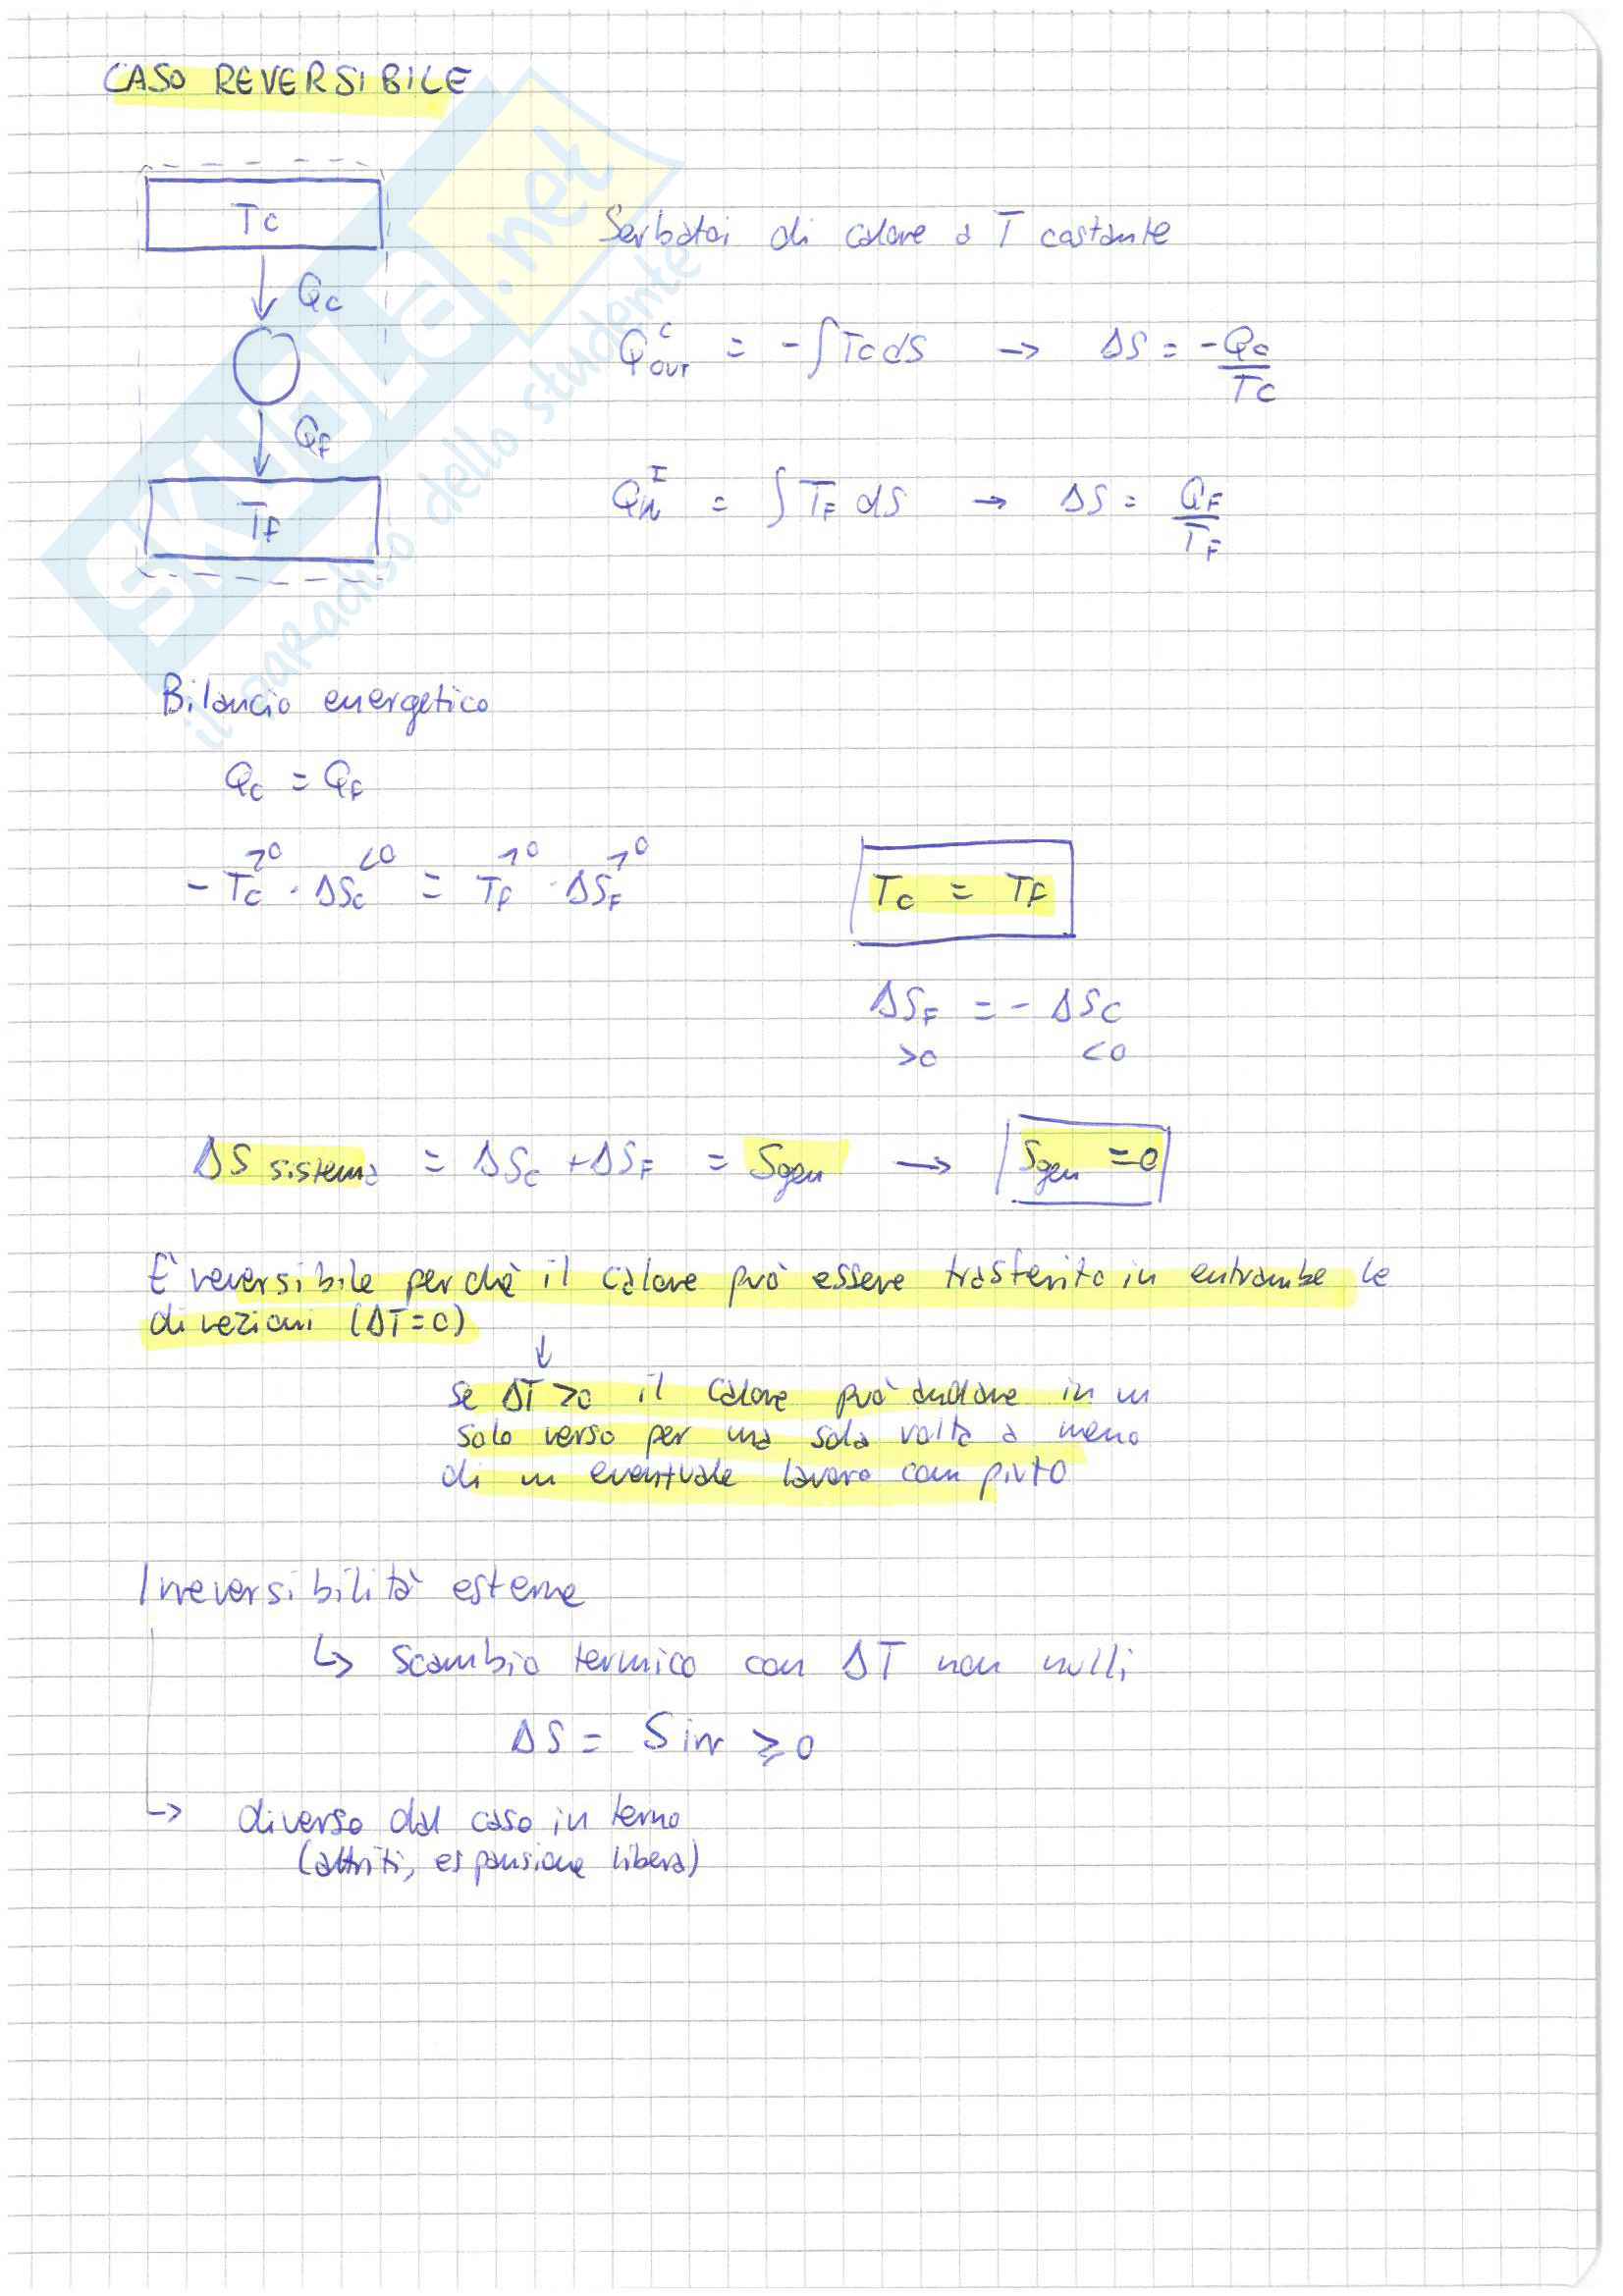 CASO REVERSIBILE
Tc
Serbatoi di calore a T costante
Qc
Q^c_out = -∫Tc dS → ΔS = -Qc/Tc
QF
Q^F_IN = ∫TF dS → ΔS = QF/TF
TF
SKUOLA.net
il paradiso dello studente
Bilancio energetico
Qc = QF
>0 <0 >0 >0
- Tc · ΔSc = TF · ΔSF
Tc = TF
ΔSF = - ΔSc
>0 <0
ΔS sistema = ΔSc + ΔSF = Sgen → Sgen = 0
È reversibile perchè il calore può essere trasferito in entrambe le
direzioni (ΔT=0)
↓
se ΔT >0 il calore può andare in un
solo verso per una sola volta a meno
di un eventuale lavoro compiuto
Irreversibilità esterne
↳ scambio termico con ΔT non nulli
ΔS = Sirr ≥ 0
→ diverso dal caso interno
(attriti, espansione libera)